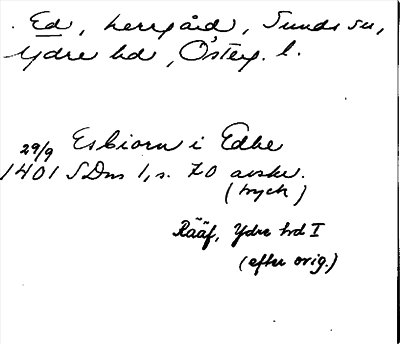 Ed, herrgård, Sunds sn,
Ydre hd, Östg. l.
29/9 Esbiorn i Edhe
1401 SDns 1, s. 70 avskr.
(tryck)
Rääf, Ydre hd I
(efter orig.)